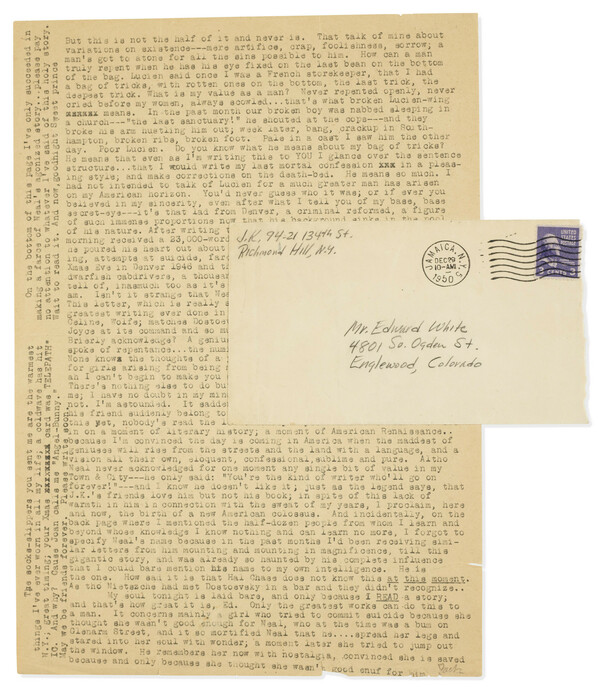 But this is not the half of it and never is. That talk of mine about
variations on existence---mere artifice, crap, foolishness, sorrow; a
man's got to atone for all the sins possible to him. How can a man
truly repent when he has his eye fixed on the last bean on the bottom
of the bag. Lucien said once I was a French storekeeper, that I had
a bag of tricks, with rotten ones on the bottom, the last trick, the
deepest trick. What is my value as a man? Never repented openly, never
cried before women, always scowled...that's what broken Lucien-wing
means. In the past month our broken boy was nabbed sleeping in
a church---"the last sanctuary!" he shouted at the cops---and they
broke his arm hustling him out; week later, bang, crackup in
hampton, broken ribs, broken foot. Pale in a cast I saw him the other
day. Poor Lucien. Do you know what he means about my bag of tricks?
He means that even as I'm writing this to YOU I glance over the sentence
structure...that I would write my last mortal confession xxx in a pleas-
ing style; and make corrections on the death-bed. He means so much. I
had not intended to talk of Lucien for a much greater man has arisen
on my American horizon. You'd never guess who it was; or if ever you
believed in my sincerity, even after what I tell you of my base, base
secret-eye---it's that lad from Denver, a criminal reformed, a figure
of such immense proportions now that his background sinks in the pool
of his nature. After writing
morning received a 23,000-word
he poured his heart out about
ing, attempts at suicide, far
Xmas Eve in Denver 1946 and t
dwarfish cabdrivers, a thousan
tell of, inasmuch too as it's
am. Isn't it strange that Wes
This letter, which is really s
greatest writing ever done in
Celine, Wolfe; matches Dostoe
Joyce at its command and so m
Brierly acknowledge? A geniu
spoke of repentance...the hum
None knows the thoughts of a
for girls arising from being
ah I can't begin to make you
There's nothing else to do bu
me; I have no doubt in my min
not. I'm astounded. It sudde
his friend suddenly belong to
this yet, nobody's read the l
in on a moment of literary history; a moment of American Renaissance..
because I'm convinced the day is coming in America when the maddest of
geniuses will rise from the streets and the land with a language, and a
vision all their own, eloquent, confessional, sublime and pure. Altho
Neal never acknowledged for one moment any single bit of value in my
Town & City---he only said: "You're the kind of writer who'll go on
forever!"---and I know he doesn't like it; just as the legend says, that
J.K.'s friends love him but not his book; in spite of this lack of
warmth in him in connection with the sweat of my years, I proclaim, here
and now, the birth of a new American colossus. And incidentally, on the
back page where I mentioned the half-dozen people from whom I learn and
beyond whose knowledge I know nothing and can learn no more, I forgot to
specify Neal's name because in the past months I'd been receiving simi-
lar letters from him mounting and mounting in magnificence, till this
gigantic story, and was already so haunted by his complete influence
that I could bare mention his name to my own intelligence. He is
the one. How sad it is that Hal Chase does not know this at this moment.
As tho Nietzsche had met Dostoevsky in a bar and they didn't recognize..
My soul tonight is laid bare, and only because I READ a story;
and that's how great it is, Ed. Only the greatest works can do this to
a man. It concerns mainly a girl who tried to commit suicide because she
thought she wasn't good enough for Neal, who at the time was a bum on
Glenarm Street, and it so mortified Neal that he....spread her legs and
stared into her soul with wonder; a moment later she tried to jump out
the window. He remembers her now with nostalgia, convinced she is saved
because and only because she thought she wasn't good enuf for him.
On the bottom of this page I've only succeeded in
making a farce of Neal's agonized story...please pay
no attention to whatever I've said of this holy story.
Wait to read it. And now, goodnight sweet prince
The socks-slippers you sent me are the warmest
things I've ever worn in all my life; a coldwave has hit
N.Y.; great timing; your Xmas card was TELEPATH-
IC. And why? Cause Joan calls me "Angel-Bunny."
May we be friends forever. Please write soon.
J.K. 94-21 134th St.
Richmond Hill, N.Y.
JAMAICA, N.Y.
DEC 29
10-AM
1950
Mr. Edward White
4801 So. Ogden St.
Englewood, Colorado